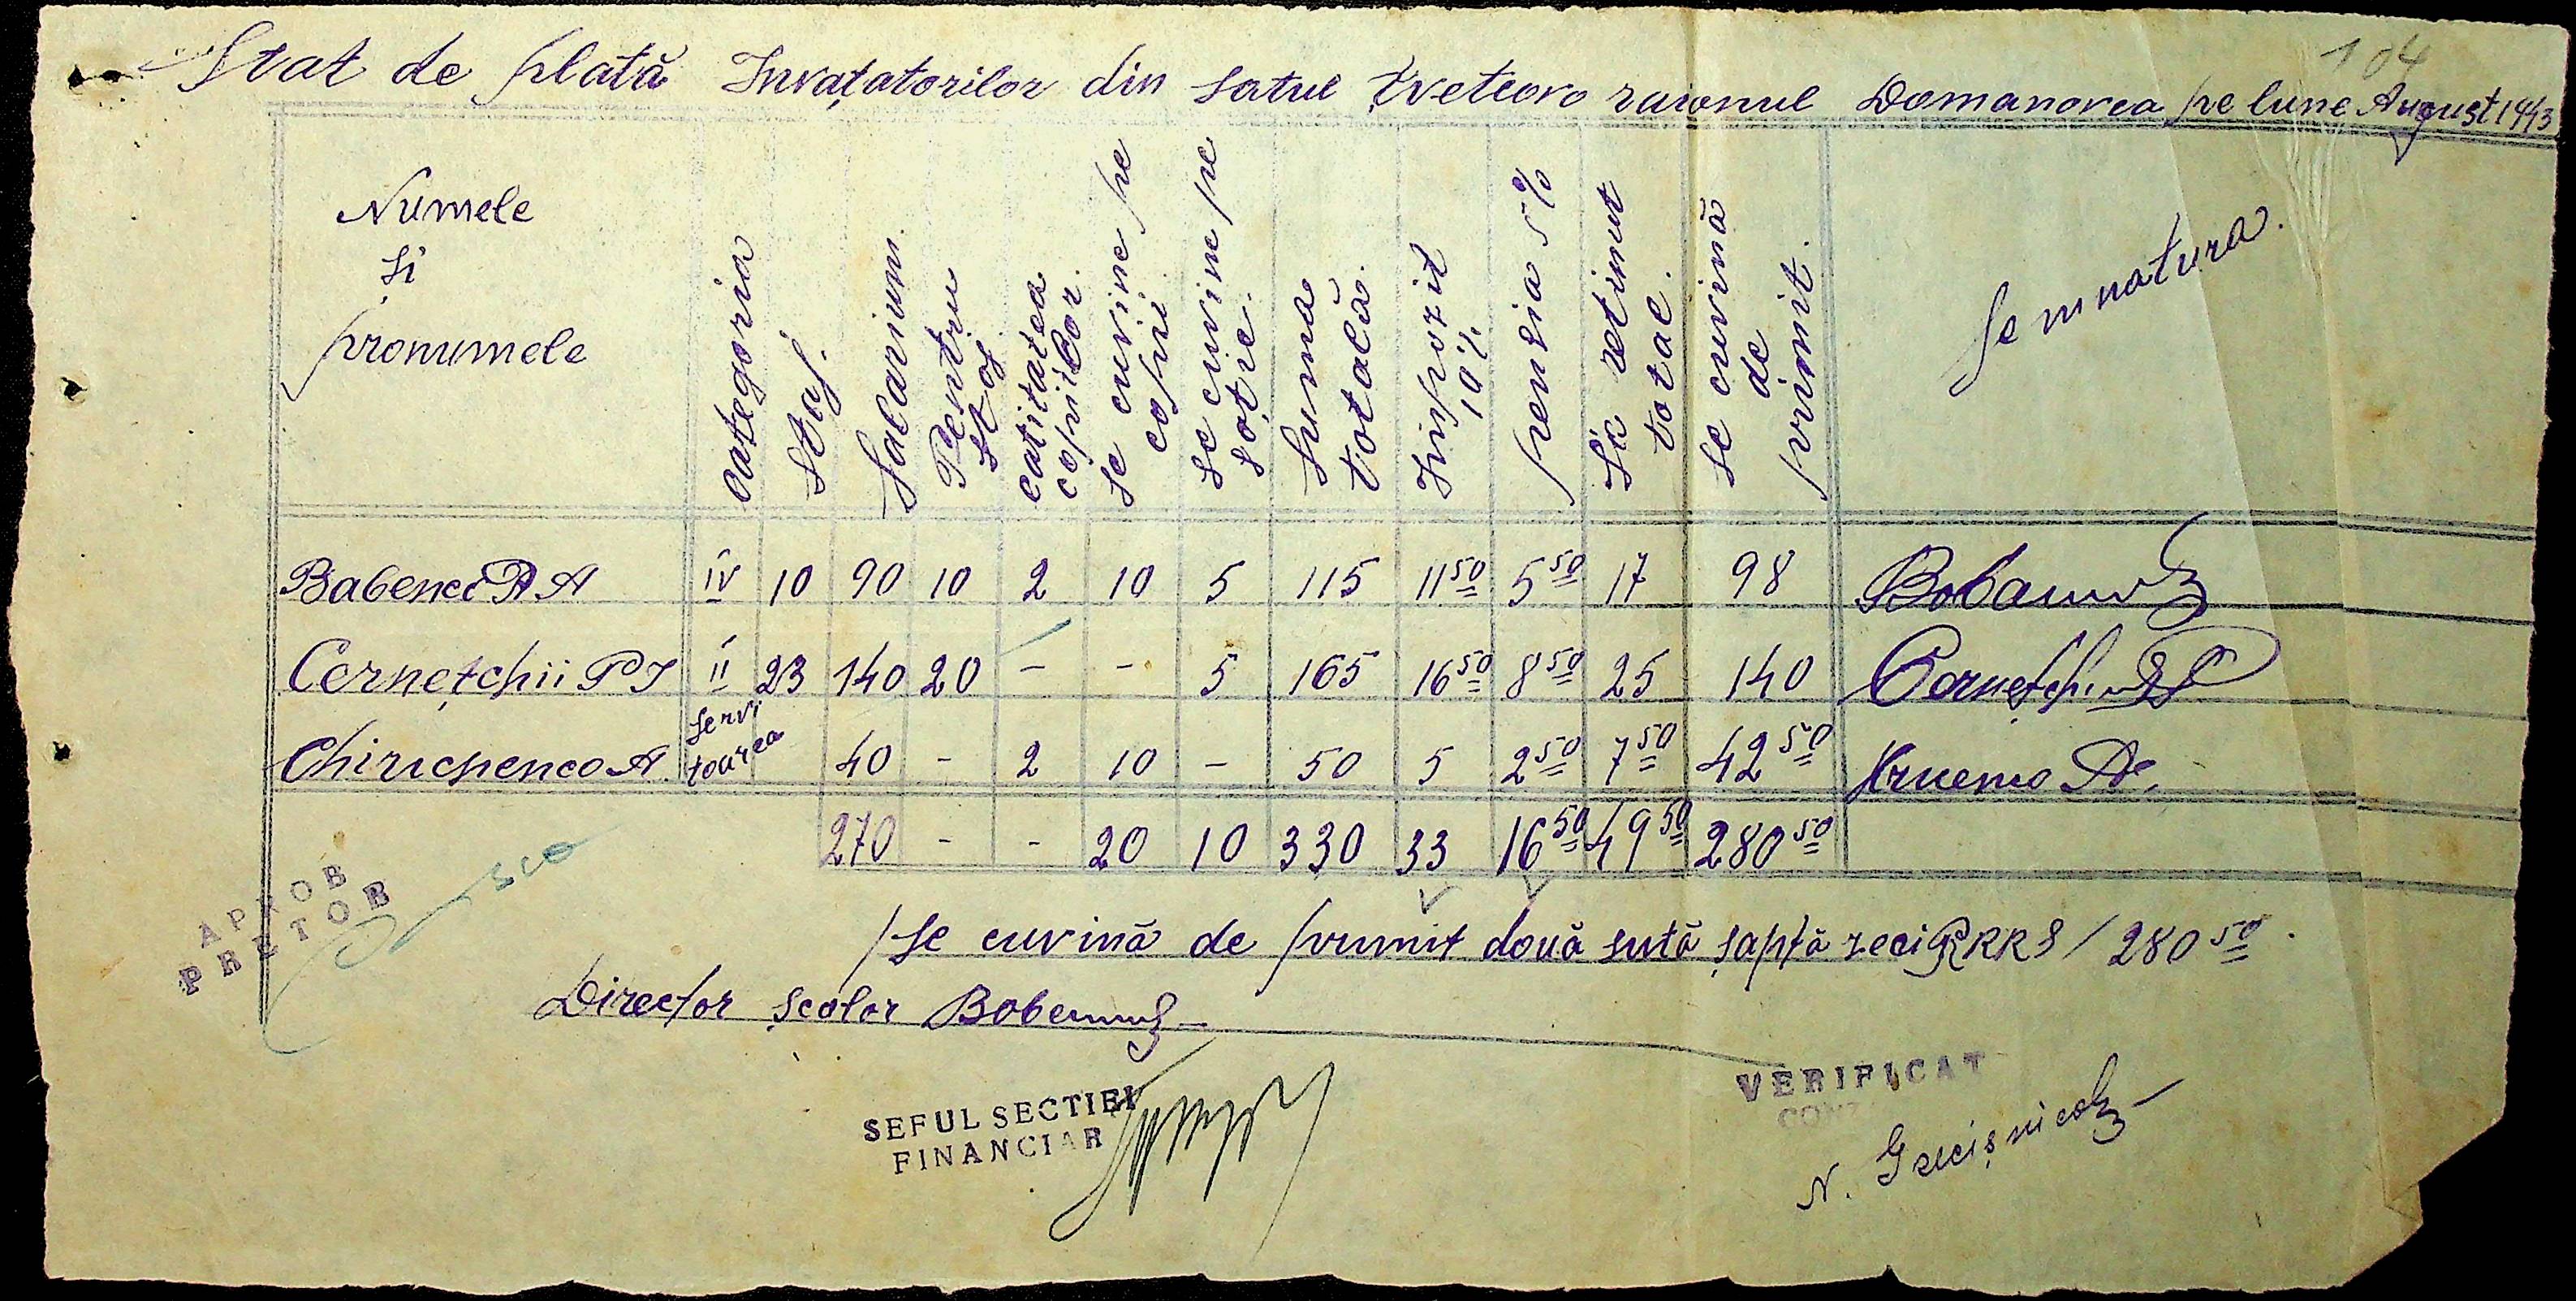 104
Stat de plată Invațatorilor din satul Țvetcovo raionul Domanovca pe lune August 1943
Numele și pronumele | categoria | Staj. | Salarium. | Pentru staj | catitatea copiilor. | se cuvine pe copii | se cuvine pe soție. | Suma totală. | Impozit 10% | pensia 5% | Se retinut total. | se cuvină de primit. | Semnatura.
Babenco A | IV | 10 | 90 | 10 | 2 | 10 | 5 | 115 | 11 50 | 5 50 | 17 | 98
Cernețchii P I | II | 23 | 140 | 20 | - | - | 5 | 165 | 16 50 | 8 50 | 25 | 140
Chiricpenco A. | servitoarea | 40 | - | 2 | 10 | - | 50 | 5 | 2 50 | 7 50 | 42 50
270 | - | - | 20 | 10 | 330 | 33 | 16 50 | 49 50 | 280 50
/Se cuvină de primit două sută șaptă zeci RKKS / 280 50.
APROB
PRETOR
Director școlor
SEFUL SECTIEI
FINANCIAR
VERIFICAT
N.